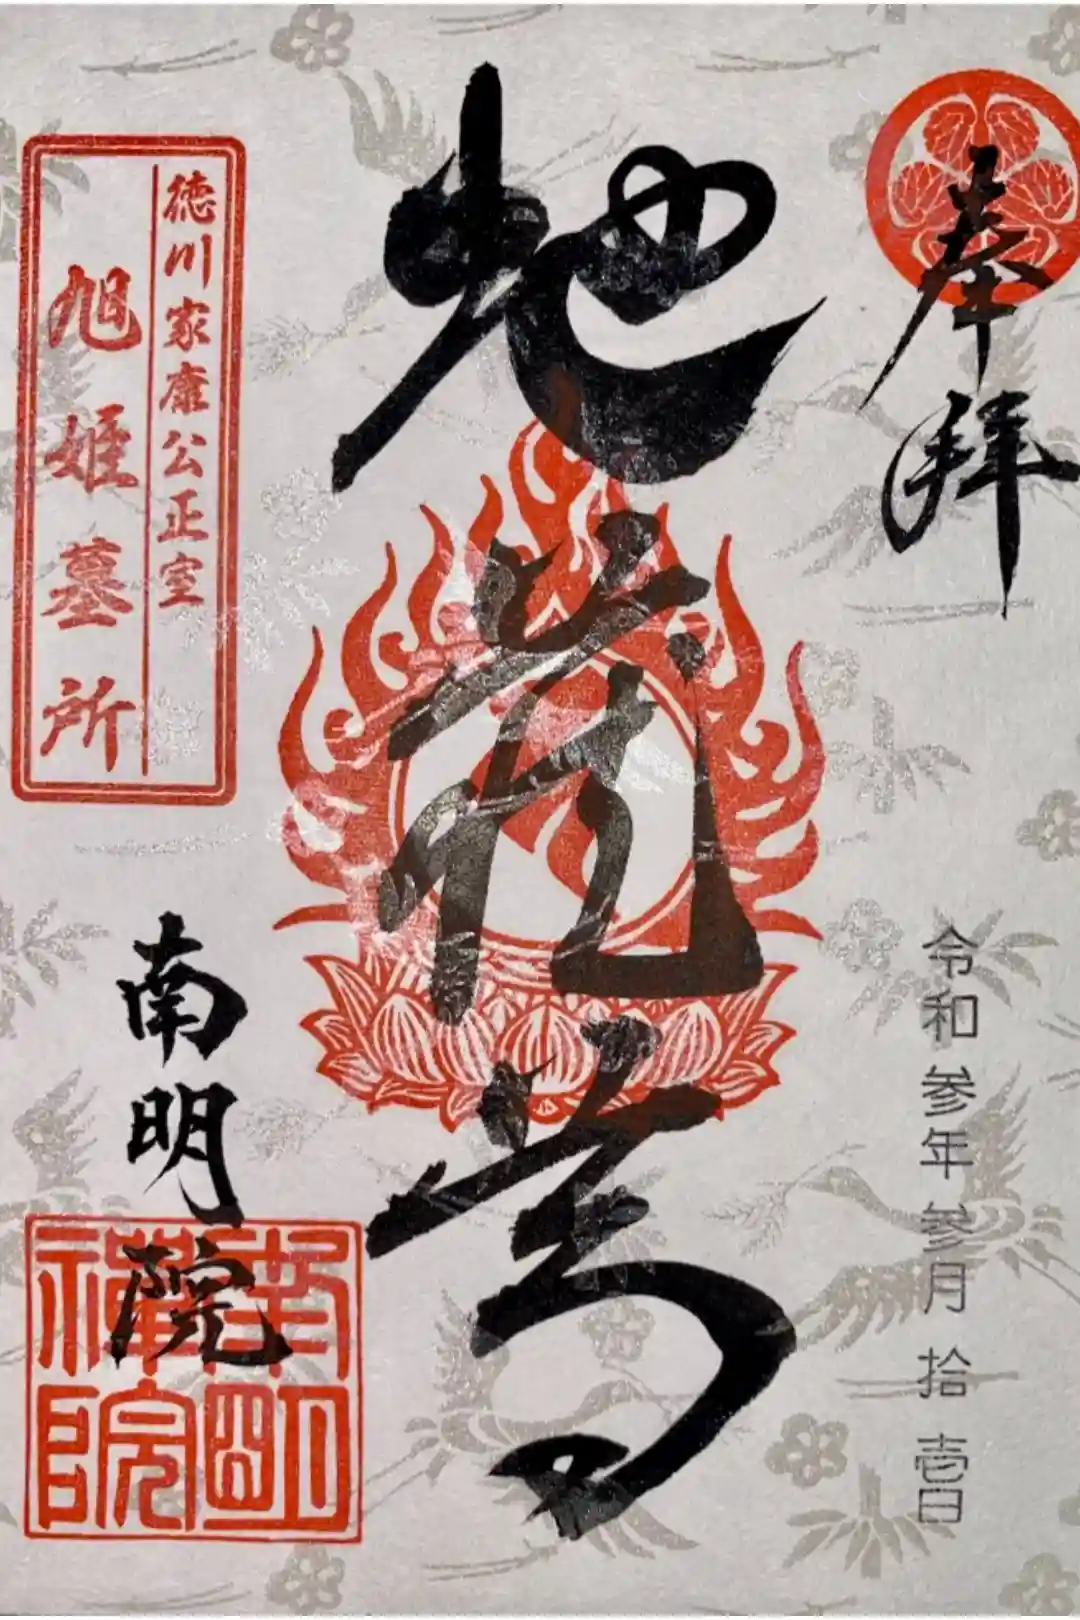 奉拝
令和参年参月拾壱日
地蔵尊
徳川家康公正室
旭姫墓所
南明院
南明
禪院